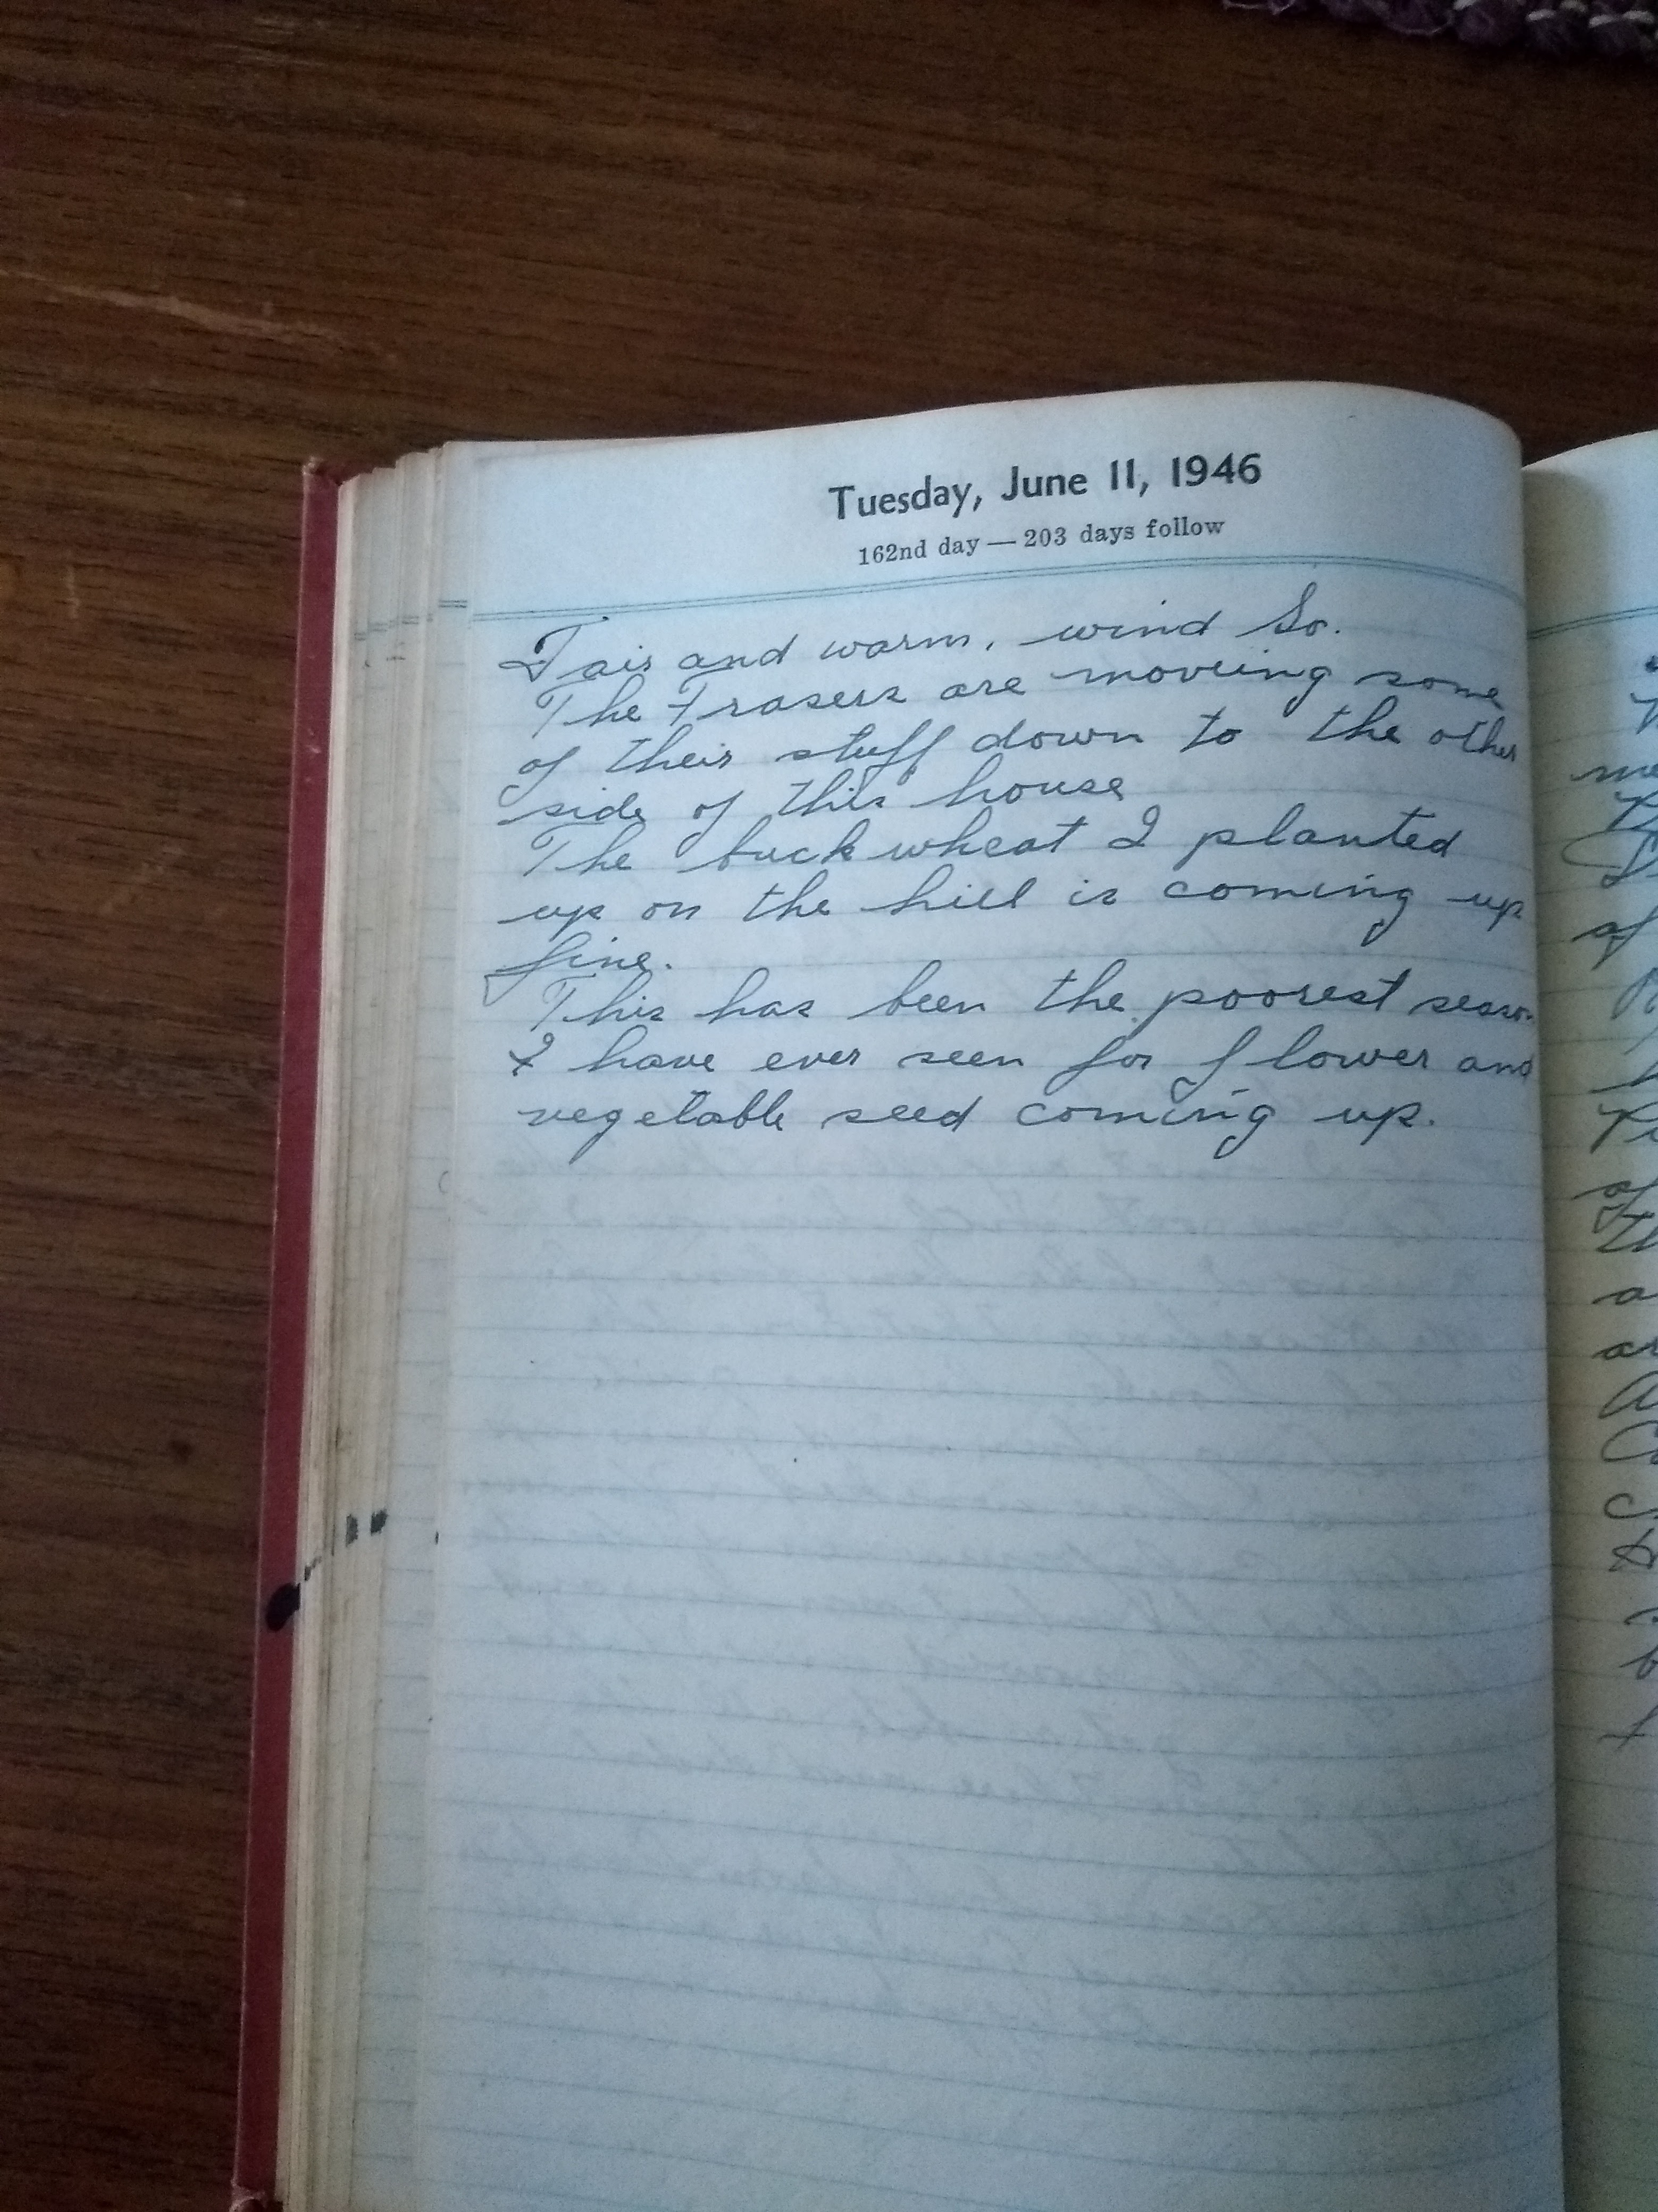 Tuesday, June 11, 1946
162nd day — 203 days follow
Fair and warm, wind So.
The Frasers are moveing some
of their stuff down to the other
side of this house
The buckwheat I planted
up on the hill is coming up
fine.
This has been the poorest season
I have ever seen for flower and
vegetable seed coming up.